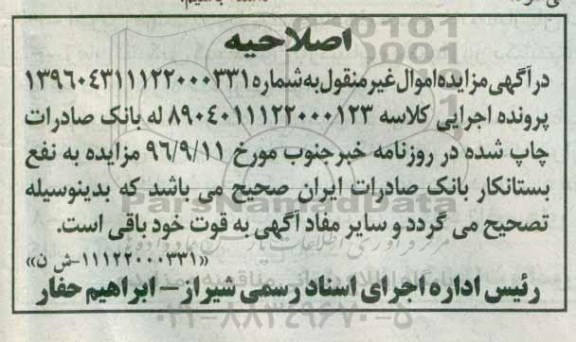 اصلاحیه
درآگهی مزایده اموال غیر منقول به شماره ۱۳۹۶۰۴۳۱۱۱۲۲۰۰۰۳۳۱
پرونده اجرایی کلاسه ۸۹۰۴۰۱۱۱۲۲۰۰۰۱۲۳ له بانک صادرات
چاپ شده در روزنامه خبرجنوب مورخ ۹۶/۹/۱۱ مزایده به نفع
بستانکار بانک صادرات ایران صحیح می باشد که بدینوسیله
تصحیح می گردد و سایر مفاد آگهی به قوت خود باقی است.
«۱۱۱۲۲۰۰۰۳۳۱-ش ن»
رئیس اداره اجرای اسناد رسمی شیراز – ابراهیم حفار
ParsNamadData
۰۲۱-۸۸۳۴۹۶۷۰-۵